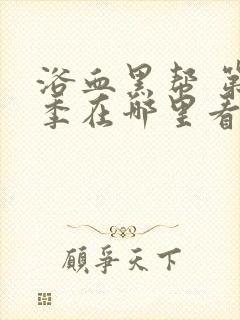 浴血黑帮 第
季在哪里看
顾争天下